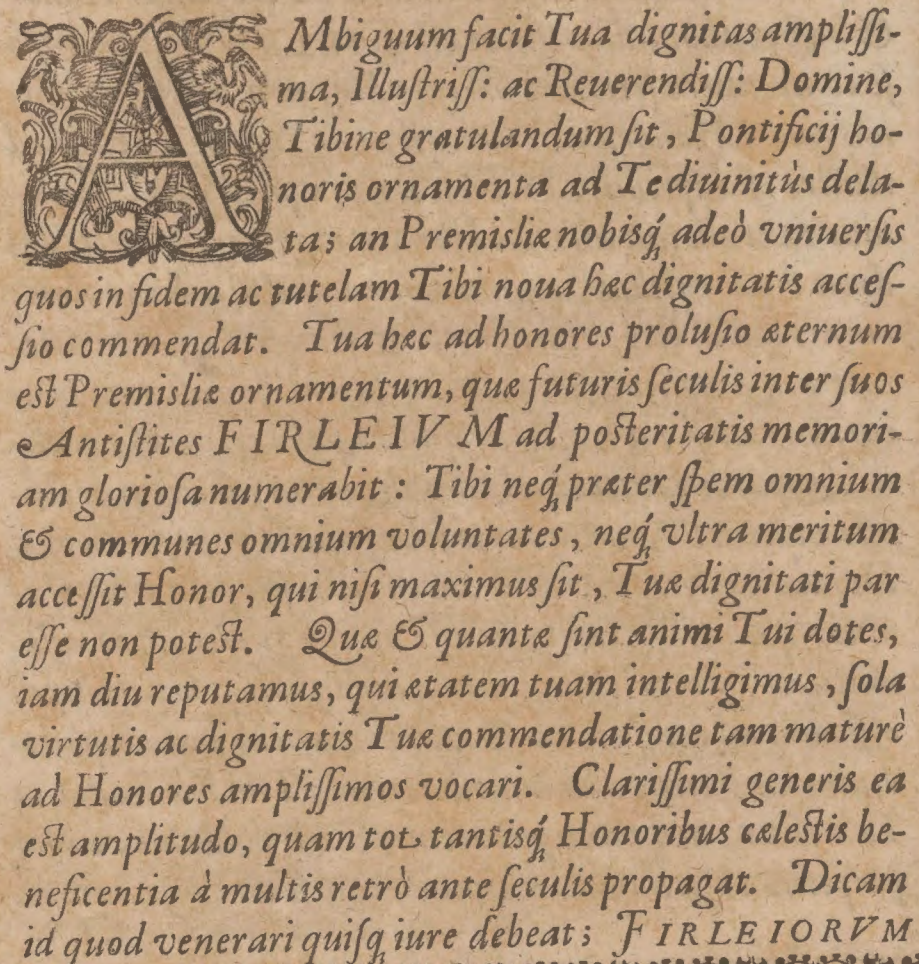 AMbiguum facit Tua dignitas ampliſſi-
ma, Illuſtriſſ: ac Reuerendiſſ: Domine,
Tibine gratulandum ſit, Pontificij ho-
noris ornamenta ad Te diuinitùs dela-
ta; an Premisliæ nobisq́; adeò vniuerſis
quos in fidem ac tutelam Tibi noua hæc dignitatis acceſ-
ſio commendat. Tua hæc ad honores proluſio æternum
eſt Premisliæ ornamentum, quæ futuris ſeculis inter ſuos
Antiſtites FIRLEIVM ad poſteritatis memori-
am glorioſa numerabit: Tibi neq́; præter ſpem omnium
& communes omnium voluntates, neq́; vltra meritum
acceſſit Honor, qui niſi maximus ſit, Tuæ dignitati par
eſſe non poteſt. Quæ & quantæ ſint animi Tui dotes,
iam diu reputamus, qui ætatem tuam intelligimus, ſola
virtutis ac dignitatis Tuæ commendatione tam maturè
ad Honores ampliſſimos vocari. Clariſſimi generis ea
eſt amplitudo, quam tot tantisq́; Honoribus cæleſtis be-
neficentia à multis retrò ante ſeculis propagat. Dicam
id quod venerari quiſq; iure debeat; FIRLEIORVM